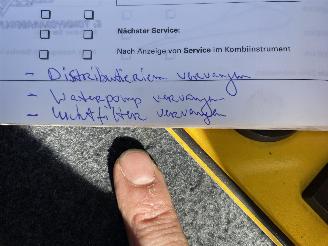 Nächster Service:
Nach Anzeige von Service im Kombiinstrument
- Distributieriem vervangen
- Waterpomp vervangen
- Luchtfilter vervangen